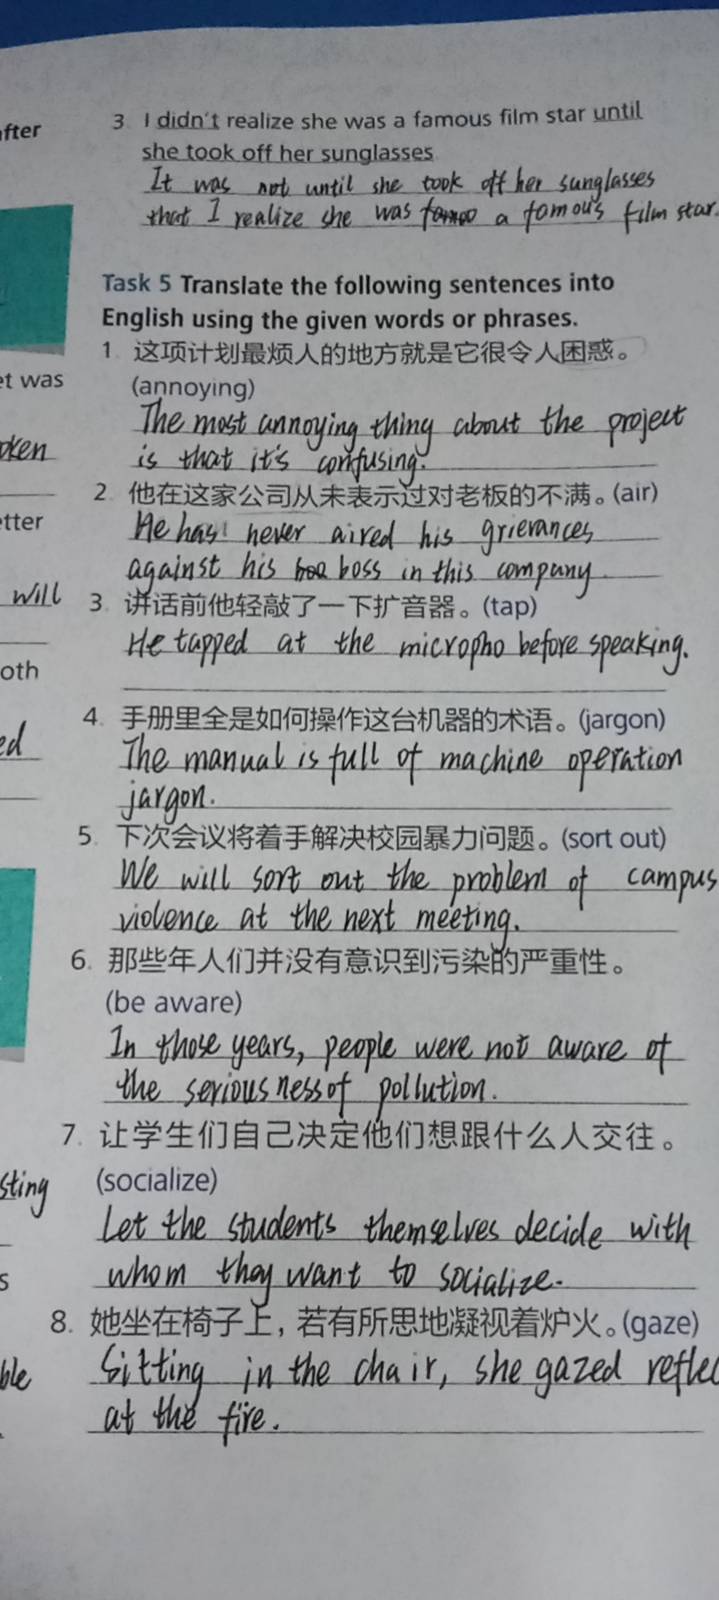 fter
3 I didn't realize she was a famous film star until
she took off her sunglasses
It was not until she took off her sunglasses
that I realize she was a famous film star.
Task 5 Translate the following sentences into
English using the given words or phrases.
1. 这项计划最烦人的地方就是它很令人困惑。
et was
(annoying)
The most annoying thing about the project
oken
is that it's confusing.
2. 他在这家公司从未表示过对老板的不满。(air)
tter
He has never aired his grievances
against his boss in this company.
will
3. 讲话前他轻敲了一下扩音器。(tap)
He tapped at the micropho before speaking.
oth
4. 手册里全是如何操作这台机器的术语。(jargon)
ed
The manual is full of machine operation
jargon.
5. 下次会议将着手解决校园暴力问题。(sort out)
We will sort out the problem of campus
violence at the next meeting.
6. 那些年人们并没有意识到污染的严重性。
(be aware)
In those years, people were not aware of
the seriousness of pollution.
7. 让学生们自己决定他们想跟什么人交往。
sting
(socialize)
Let the students themselves decide with
s
whom they want to socialize.
8. 她坐在椅子上，若有所思地凝视着炉火。(gaze)
ble
Sitting in the chair, she gazed reflec
at the fire.